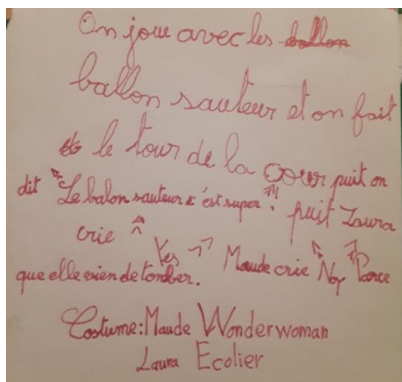 On joue avec les ballon
ballon sauteur et on fait
le tour de la cour puit on
dit "Le balon sauteur c'est super". puit Laura
crie "Yes" Maude crie "No" Parce
que elle vien de tomber.
Costume: Maude Wonderwoman
Laura Ecolier